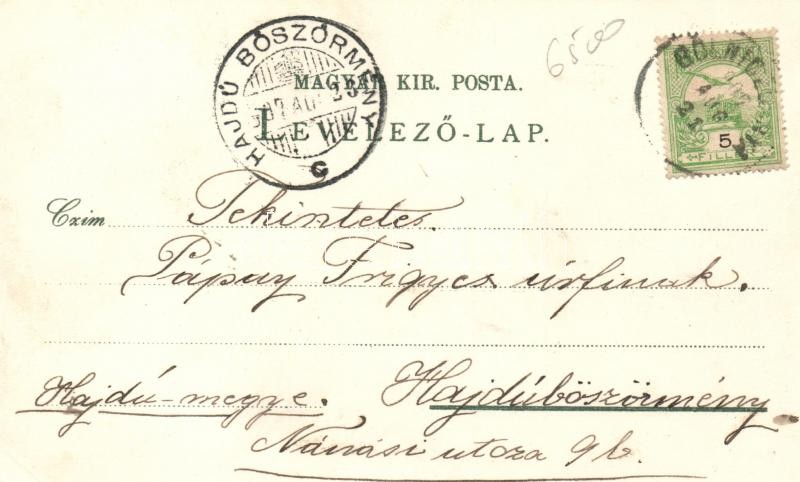 HAJDÚ BÖSZÖRMÉNY
C
6500
MAGYAR KIR. POSTA.
LEVELEZŐ-LAP.
5
FILLÉR
Czim
Tekintetes
Pápay Frigyes úrfinak.
Hajdú-megye. Hajdúböszörmény
Nánási utcza 9b.